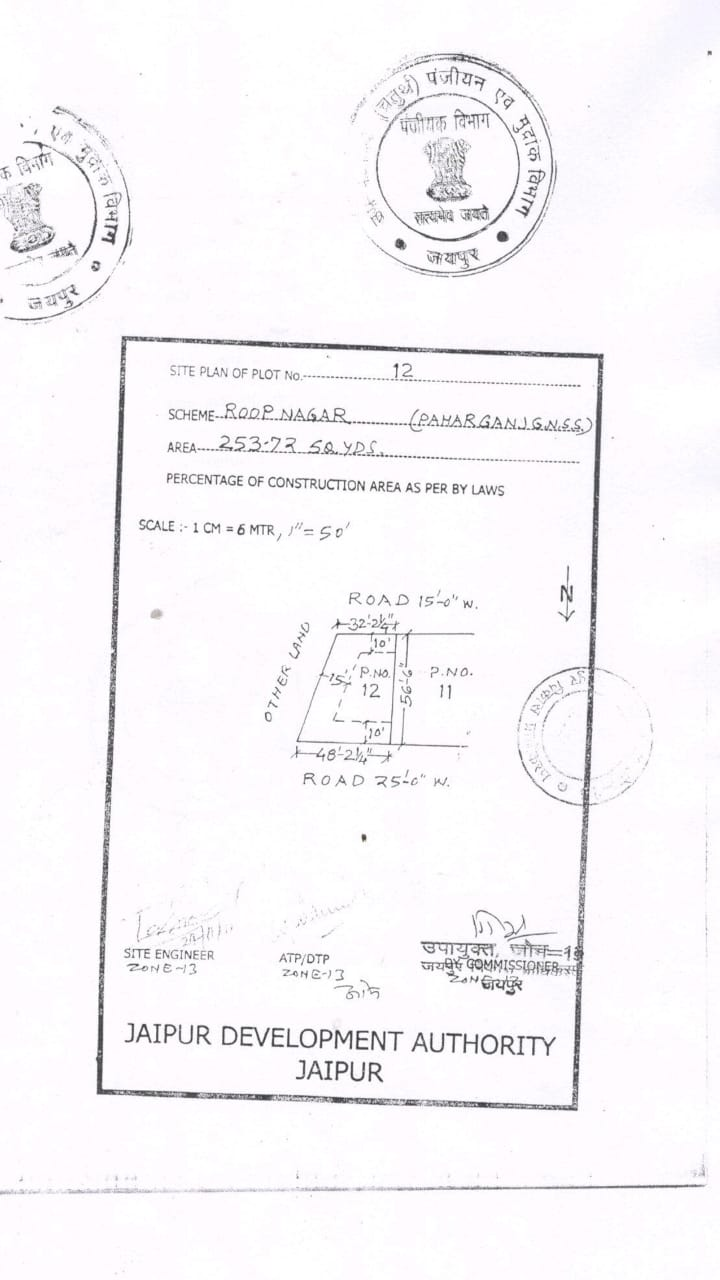 एवं मुद्रांक विभाग
क विभाग
जयपुर
(चतुर्थ) पंजीयन एवं मुद्रांक विभाग
पंजीयक विभाग
सत्यमेव जयते
जयपुर
SITE PLAN OF PLOT No. 12
SCHEME ROOP NAGAR (PAHARGANJ G.N.S.S.)
AREA 253-72 SQ.YDS.
PERCENTAGE OF CONSTRUCTION AREA AS PER BY LAWS
SCALE :- 1 CM = 6 MTR, 1"= 50'
N
ROAD 15'-0" W.
32'-2¼"
10'
OTHER LAND
15'
P.NO. 12
56'-6"
P.NO. 11
10'
48'-2¼"
ROAD 25'-0" W.
SITE ENGINEER
ZONE-13
ATP/DTP
ZONE-13
उपायुक्त, जोन-13
DY COMMISSIONER
ZONE-13
जयपुर
JAIPUR DEVELOPMENT AUTHORITY
JAIPUR